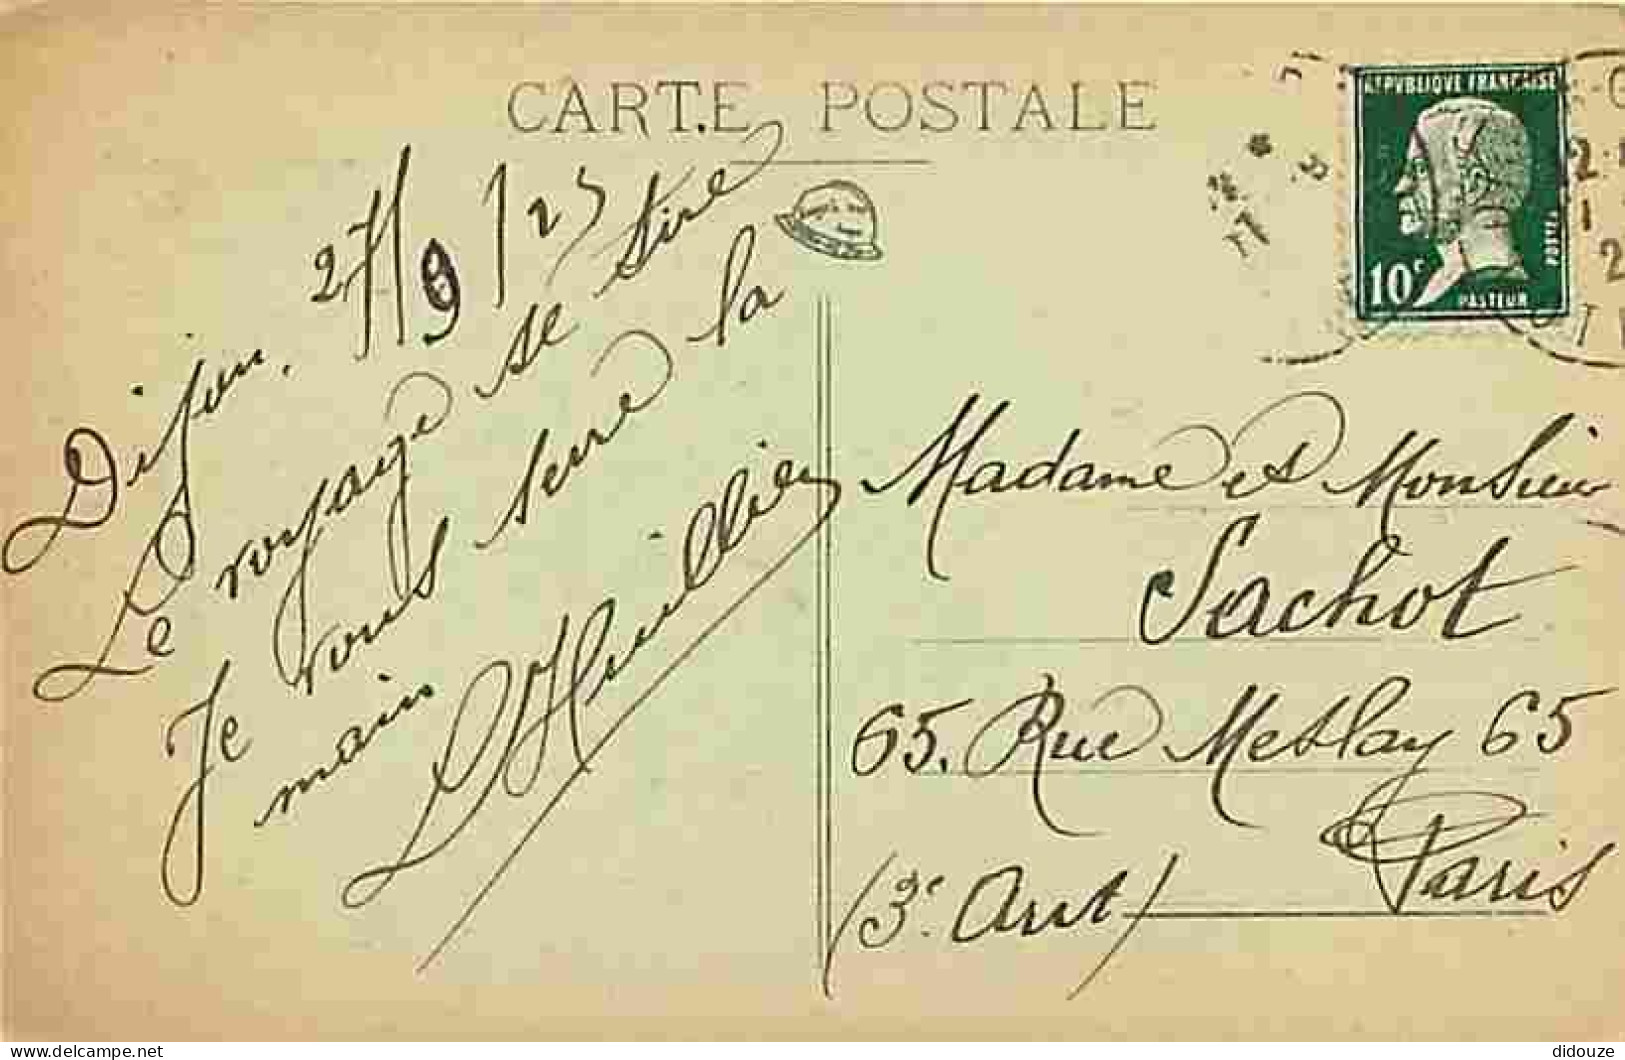 CARTE POSTALE
REPUBLIQUE FRANÇAISE
10c
POSTES
PASTEUR
Dijon, 27/9/23
Le voyage se tire
Je vous serre la
main
L'Huillier
Madame et Monsieur
Sachot
65. Rue Meslay 65
Paris
(3e Arrt)
delcampe.net
didouze